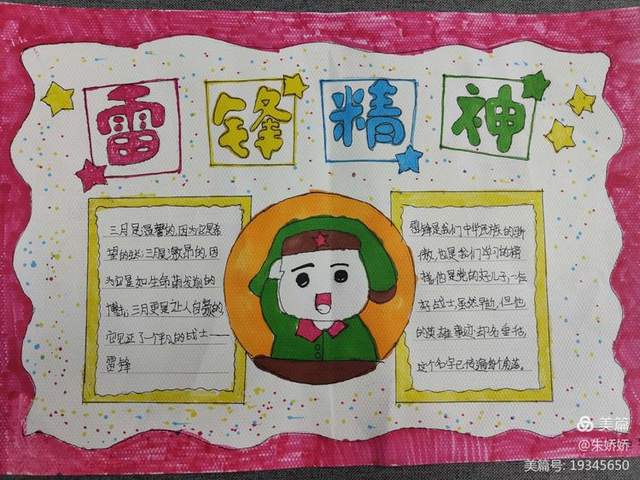 雷锋精神
三月是温馨的,因为它是希
望的
三月是激昂的,因
为它是如生命萌发般的
三月更是让人自豪的
它见证了一个平凡的战士——
雷锋
雷锋是我们中华民族的骄
傲,也是我们学习的榜
样,他是党的好儿子,一位
好战士,虽然早逝,但他
的英雄事迹却名垂千
这个名字已传遍每个角落。
美篇
@朱娇娇
美篇号: 19345650